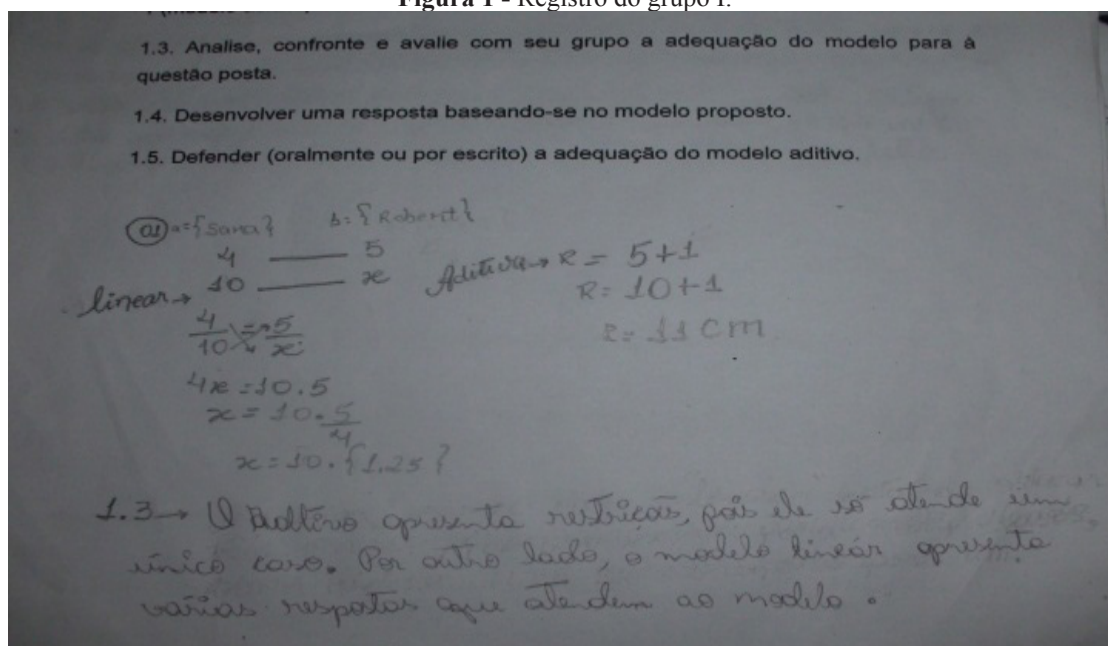 Figura 1 - Registro do grupo I.
1.3. Analise, confronte e avalie com seu grupo a adequação do modelo para à
questão posta.
1.4. Desenvolver uma resposta baseando-se no modelo proposto.
1.5. Defender (oralmente ou por escrito) a adequação do modelo aditivo.
a={Sara} b={Robert}
4 — 5
linear→ 10 — x
Aditiva→ R = 5+1
R= 10+1
R= 11 cm
4/10 = 5/x
4x=10.5
x=10.5/4
x=10.{1,25}
1.3→ O apresenta restrições, pois ele só atende um
único caso. Por outro lado, o modelo linear apresenta
várias respostas que atendem ao modelo.